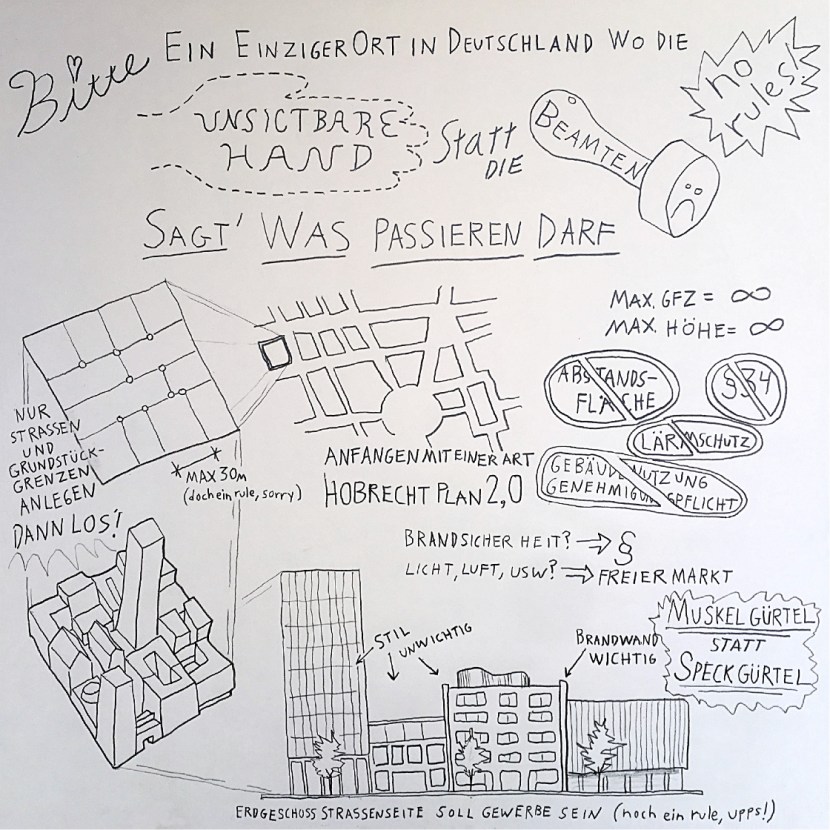 Bitte
EIN EINZIGER ORT IN DEUTSCHLAND WO DIE
no
rules!
UNSICTBARE
HAND
Statt
DIE
BEAMTEN
SAGT' WAS PASSIEREN DARF
MAX. GFZ = ∞
MAX. HÖHE = ∞
ABSTANDS-
FLÄCHE
§34
LÄRMSCHUTZ
GEBÄUDENUTZUNG
GENEHMIGUNGSPFLICHT
NUR
STRASSEN
UND
GRUNDSTÜCK-
GRENZEN
ANLEGEN
DANN LOS!
MAX 30m
(doch ein rule, sorry)
ANFANGEN MIT EINER ART
HOBRECHT PLAN 2,0
BRANDSICHERHEIT? → §
LICHT, LUFT, USW? → FREIER MARKT
MUSKEL GÜRTEL
STATT
SPECK GÜRTEL
STIL
UNWICHTIG
BRANDWAND
WICHTIG
ERDGESCHOSS STRASSENSEITE SOLL GEWERBE SEIN (noch ein rule, upps!)